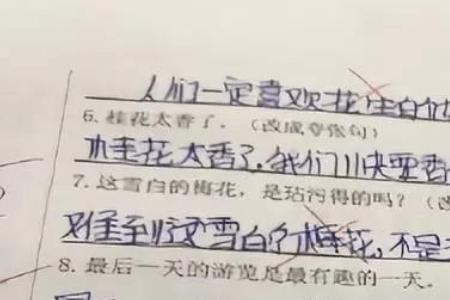 人们一定喜欢花生白
6. 桂花太香了。（改成夸张句）
桂花太香了，我们快要香
7. 这雪白的梅花，是玷污得的吗？（改
雪白的梅花，不是
8. 最后一天的游览是最有趣的一天。